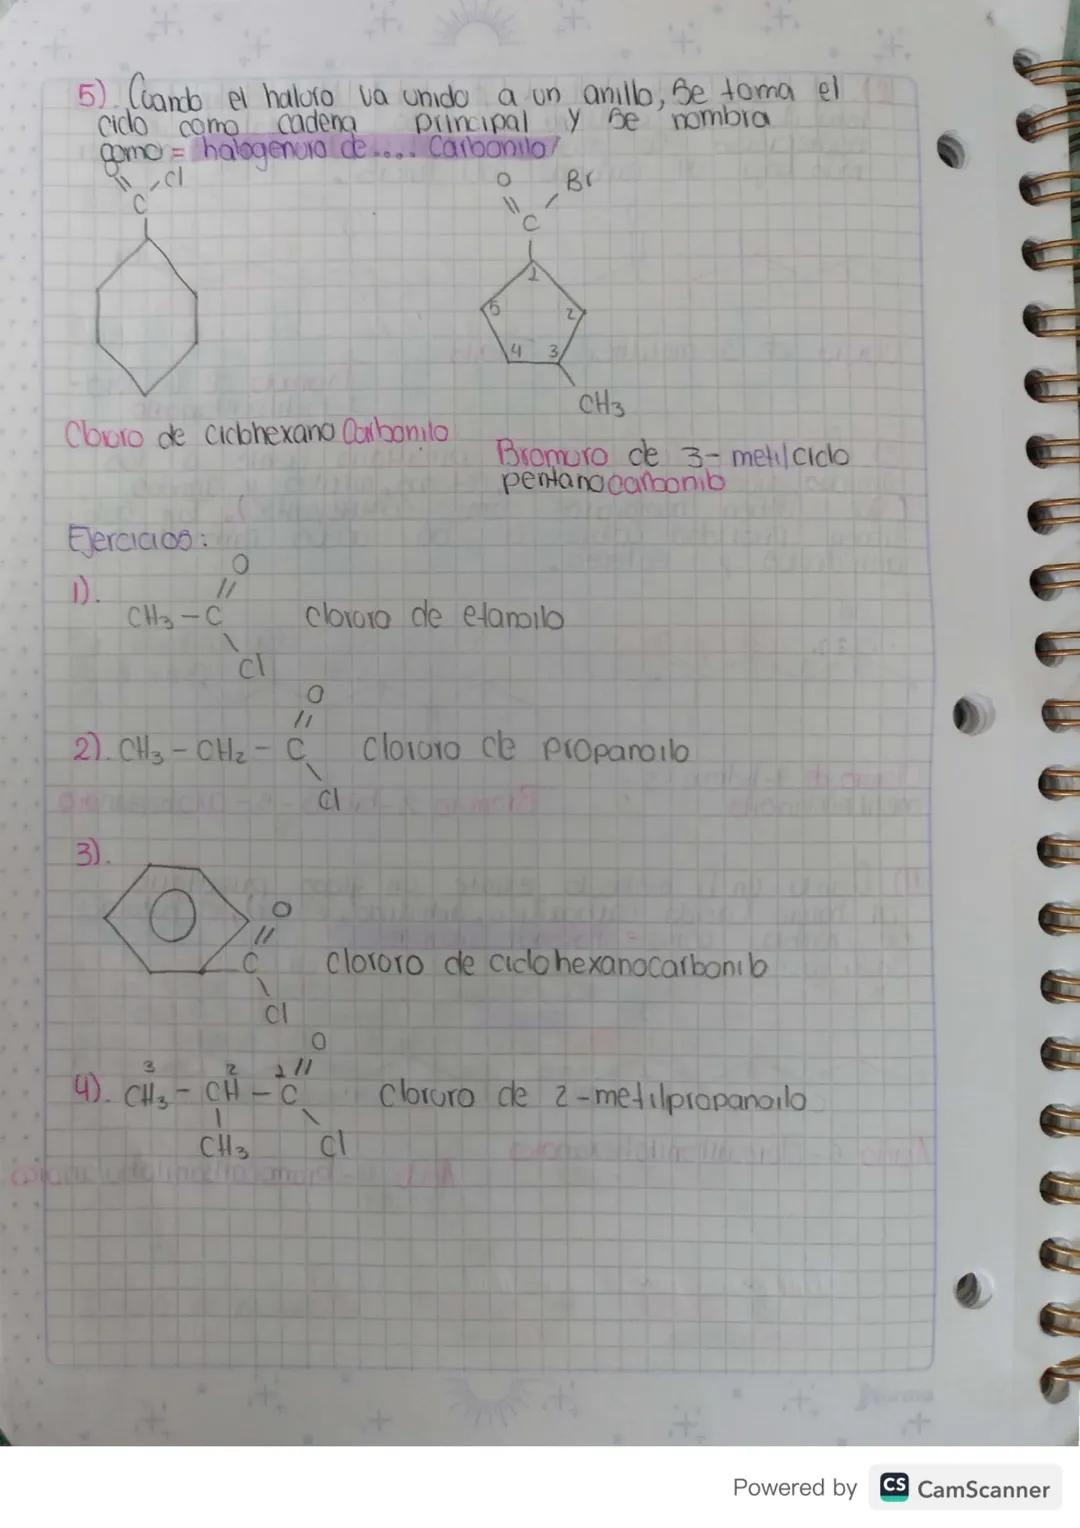 5). Cuando el haluro va unido a un anillo, Se toma el
ciclo como cadena principal y se nombra
como = halogenuro de.... Carbonilo/
O Cl
C
O Br
C
1
5 2
4 3
CH3
Cloruro de ciclohexano Carbonilo
Bromuro de 3-metilciclo
pentanocarbonilo
Ejercicios:
1).
O
CH3-C cloruro de etanoilo
Cl
O
2). CH3-CH2-C Cloruro de propanoilo
Cl
3).
O
C cloruro de ciclohexanocarbonilo
Cl
O
3 2 1
4). CH3-CH-C Cloruro de 2-metilpropanoilo
CH3 Cl
Powered by CS CamScanner